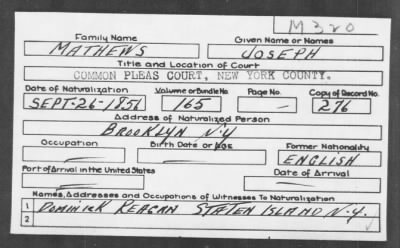 M320
Family Name Given Name or Names
MATHEWS JOSEPH
Title and Location of Court
COMMON PLEAS COURT, NEW YORK COUNTY.
Date of Naturalization Volume or Bundle No. Page No. Copy of Record No.
SEPT-26-1856 165 — 276
Address of Naturalized Person
BROOKLYN N.Y
Occupation Birth Date or Age Former Nationality
— — ENGLISH
Port of Arrival in the United States Date of Arrival
— —
Names, Addresses and Occupations of Witnesses To Naturalization
1 DOMINICK REAGAN STATEN ISLAND N.Y.
2